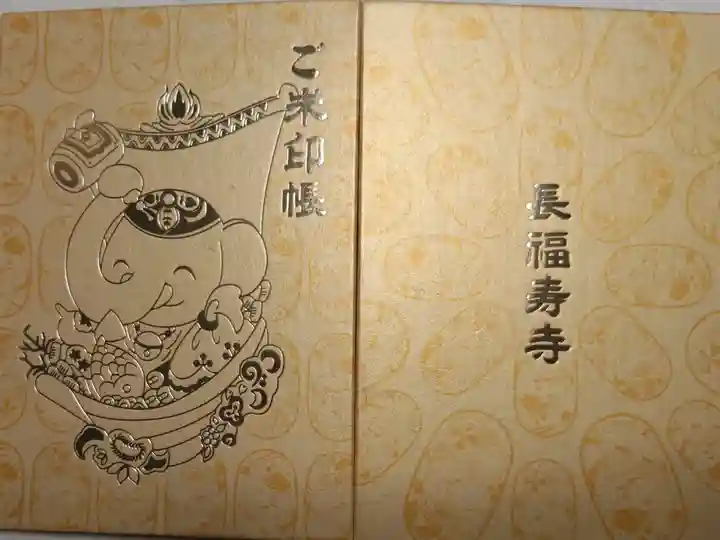 ご朱印帳
長福寿寺